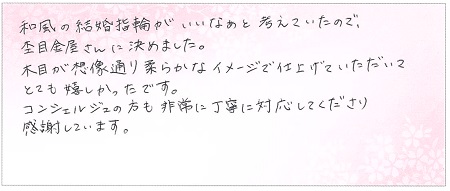 和風の結婚指輪がいいなあと考えていたので、
杢目金屋さんに決めました。
木目が想像通り柔らかなイメージで仕上げていただいて
とても嬉しかったです。
コンシェルジュの方も非常に丁寧に対応してくださり
感謝しています。